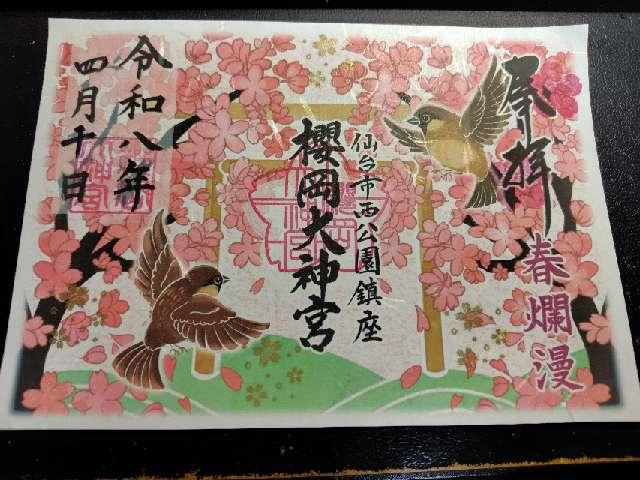 奉拝
春爛漫
仙台市西公園鎮座
櫻岡大神宮
令和八年
四月十日